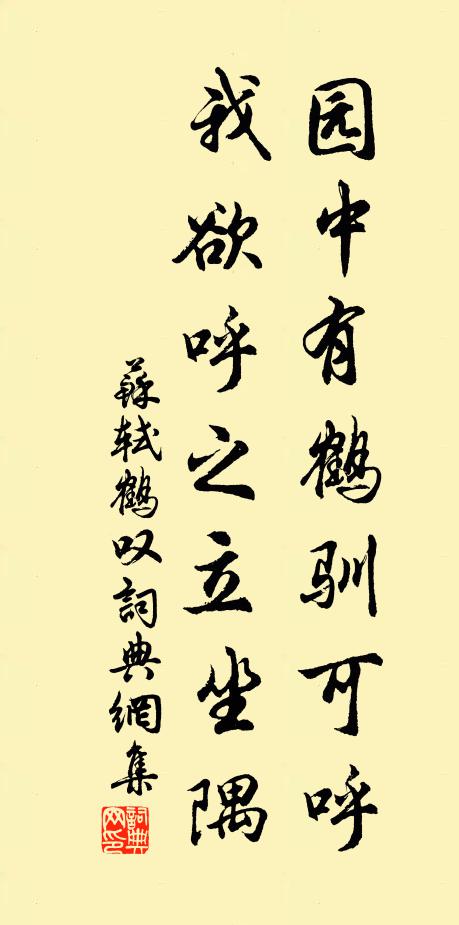 园中有鹤驯可呼
我欲呼之立坐隅
蘇轼鹤叹詞典網集
詞典网印